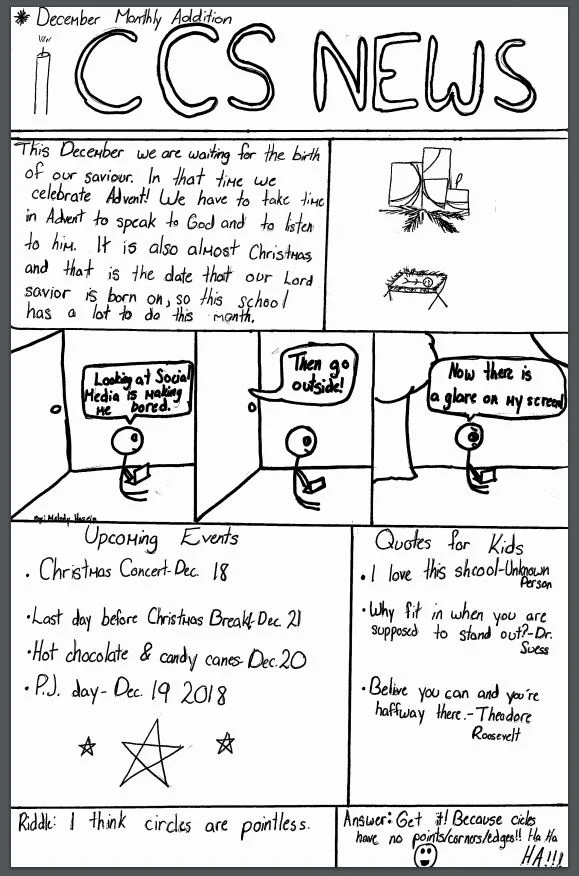 * December Monthly Addition
CCS NEWS
This December we are waiting for the birth
of our saviour. In that time we
celebrate Advent! We have to take time
in Advent to speak to God and to listen
to him. It is also almost Christmas,
and that is the date that our Lord
savior is born on, so this school
has a lot to do this month.
Looking at Social
Media is making
me bored.
Then go
outside!
Now there is
a glare on my screen!
By: Melody
Upcoming Events
• Christmas Concert-Dec. 18
• Last day before Christmas Break-Dec. 21
• Hot chocolate & candy canes-Dec.20
• P.J. day-Dec. 19 2018
Quotes for Kids
• I love this shcool-Unknown
Person
• Why fit in when you are
supposed to stand out?-Dr.
Suess
• Belive you can and you're
halfway there.-Theodore
Roosevelt
Riddle: I think circles are pointless.
Answer: Get it! Because cicles
have no points/corners/edges!! Ha Ha
HA!!!